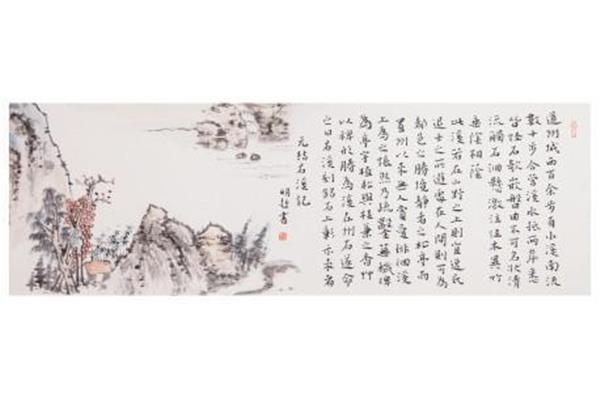 道州城西百余步有小溪南流
數十步合營溪水抵兩岸悉
皆怪石欹嵌盤曲不可名狀清
流觸石洄懸激注佳木異竹
垂陰相蔭
此溪若在山野之上則宜逸民
退士之所遊處在人間則可為
都邑之勝境靜者之林亭而
置州以來無人賞愛徘徊溪
上為之悵然乃疏鑿蕪穢俾
為亭宇植松與桂兼之香草
以裨形勝為溪在州右遂命
之曰右溪刻銘石上彰示來者
元結右溪記
明哲書